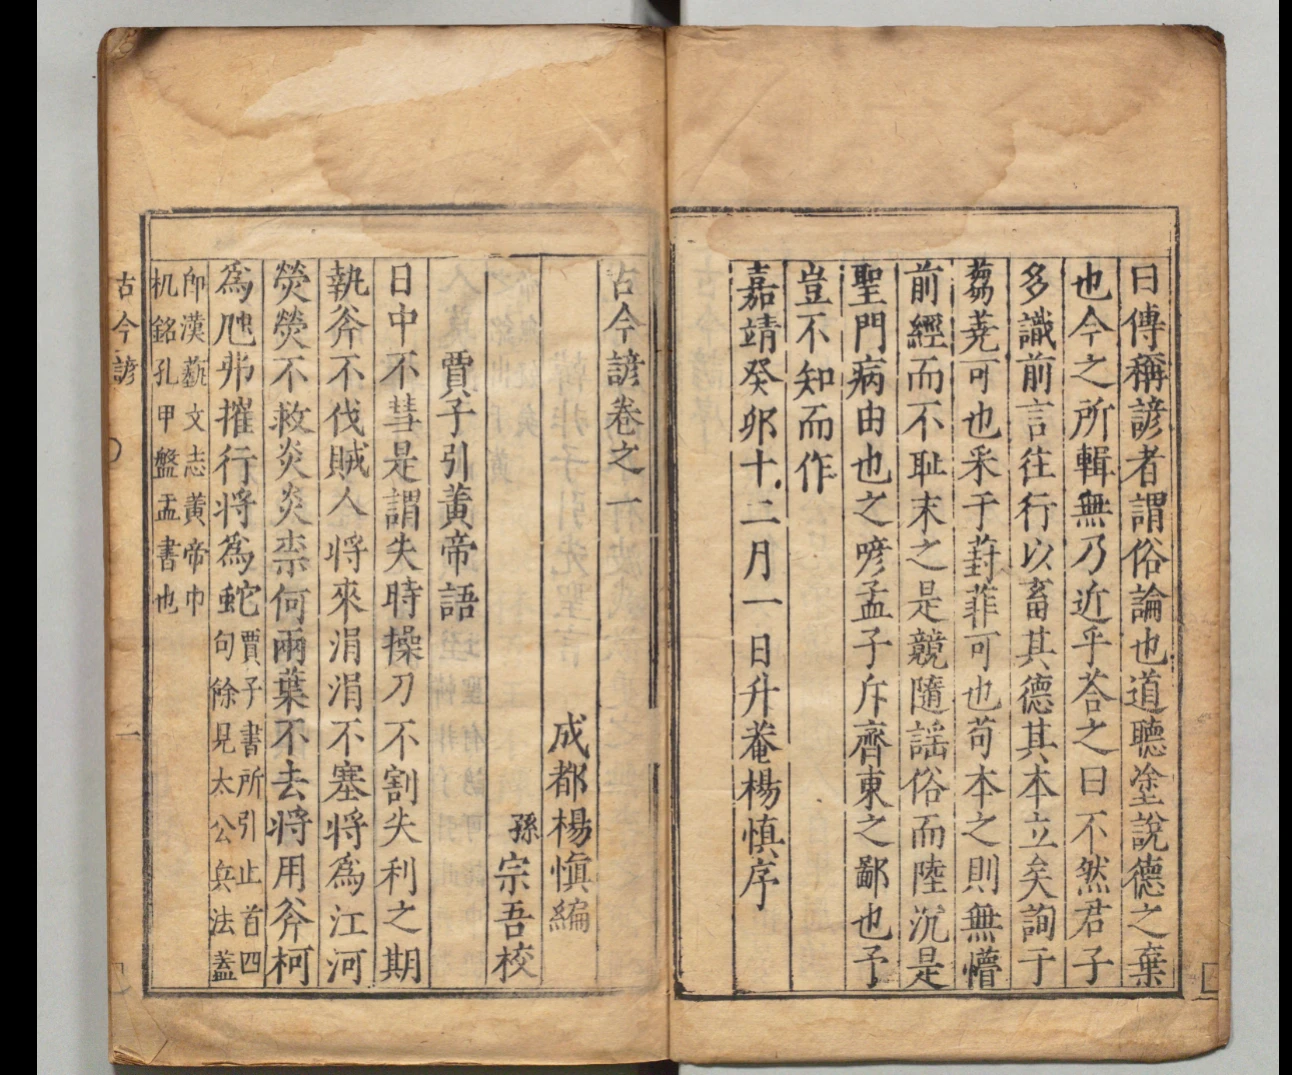 曰傳稱諺者謂俗論也道聽塗說德之棄
也今之所輯無乃近乎荅之曰不然君子
多識前言往行以畜其德其本立矣詢于
芻蕘可也采于葑菲可也苟本之則無懵
前經而不耻末之是競隨謡俗而陸沉是
聖門病由也之喭孟子斥齊東之鄙也予
豈不知而作
嘉靖癸卯十二月一日升菴楊慎序
古今諺卷之一
成都楊慎編
孫宗吾校
賈子引黃帝語
日中不彗是謂失時操刀不割失利之期
執斧不伐賊人将來涓涓不塞将爲江河
熒熒不救炎炎柰何兩葉不去将用斧柯
爲虺弗摧行将爲蛇
賈子書所引止首四
句餘見太公兵法蓋
卽漢藝文志黃帝巾
机銘孔甲盤盂書也
古今諺
一